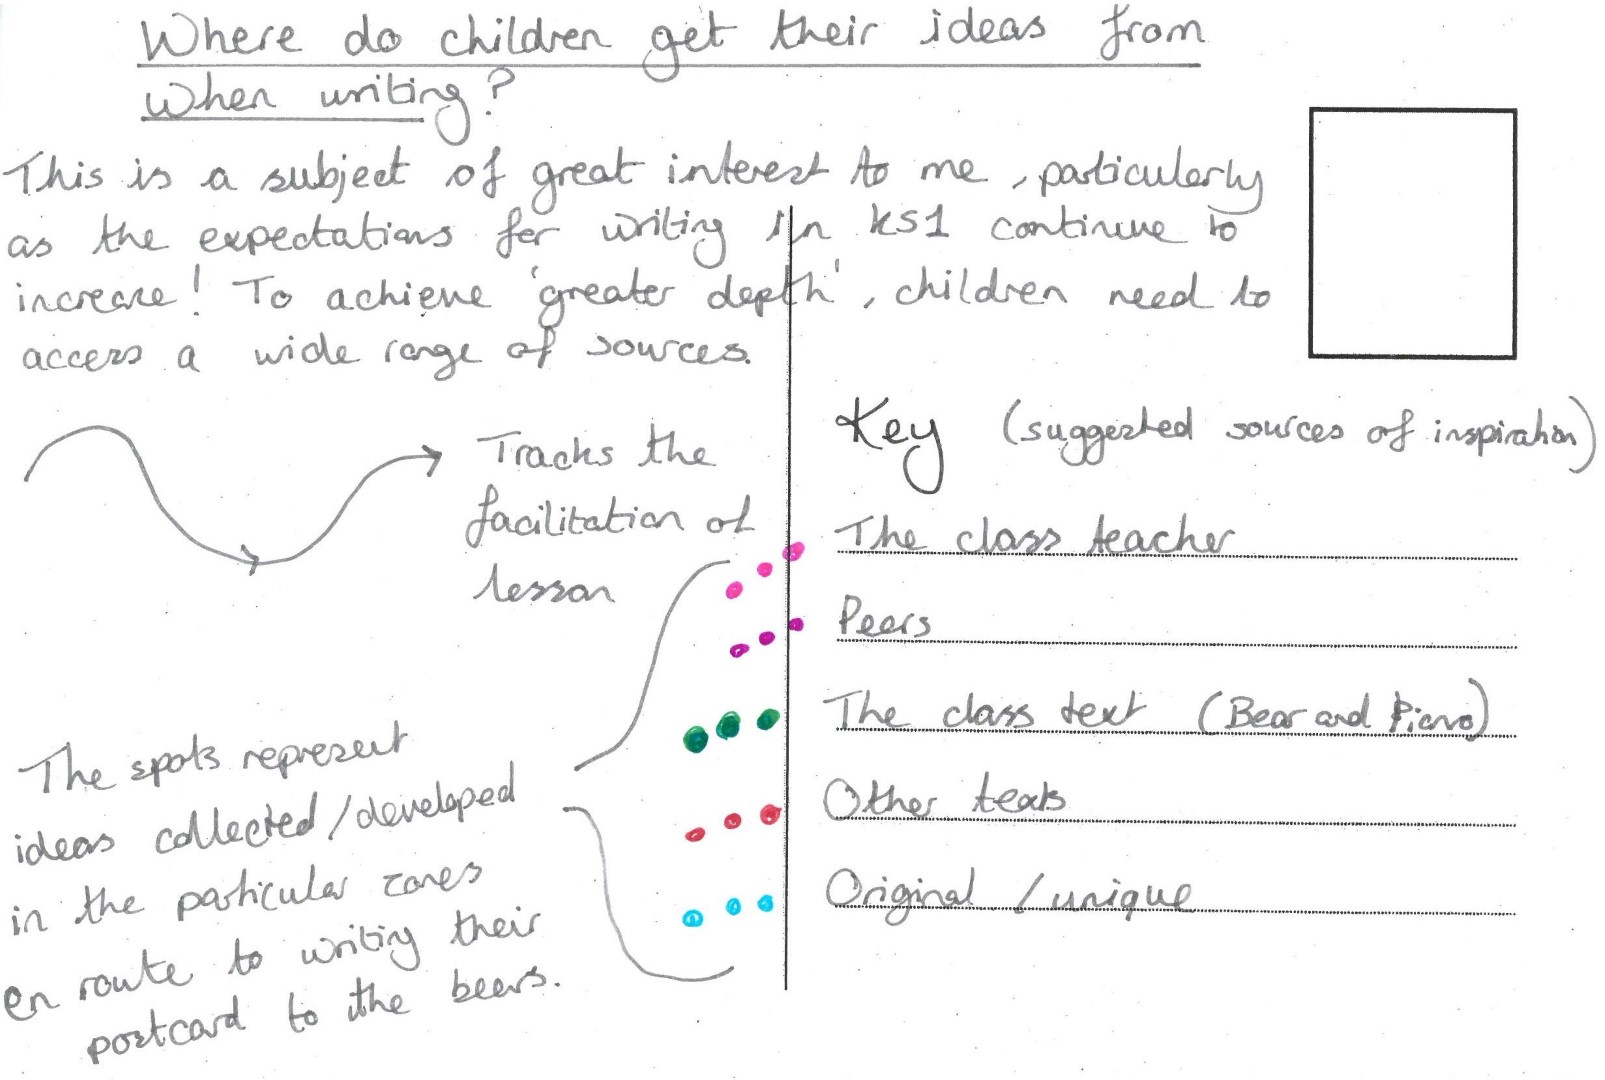 Where do children get their ideas from
when writing?
This is a subject of great interest to me, particularly
as the expectations for writing in KS1 continue to
increase! To achieve 'greater depth', children need to
access a wide range of sources.
Tracks the
facilitation of
lesson
The spots represent
ideas collected/developed
in the particular zones
en route to writing their
postcard to the bears.
Key (suggested sources of inspiration)
The class teacher
Peers
The class text (Bear and Piano)
Other texts
Original / unique